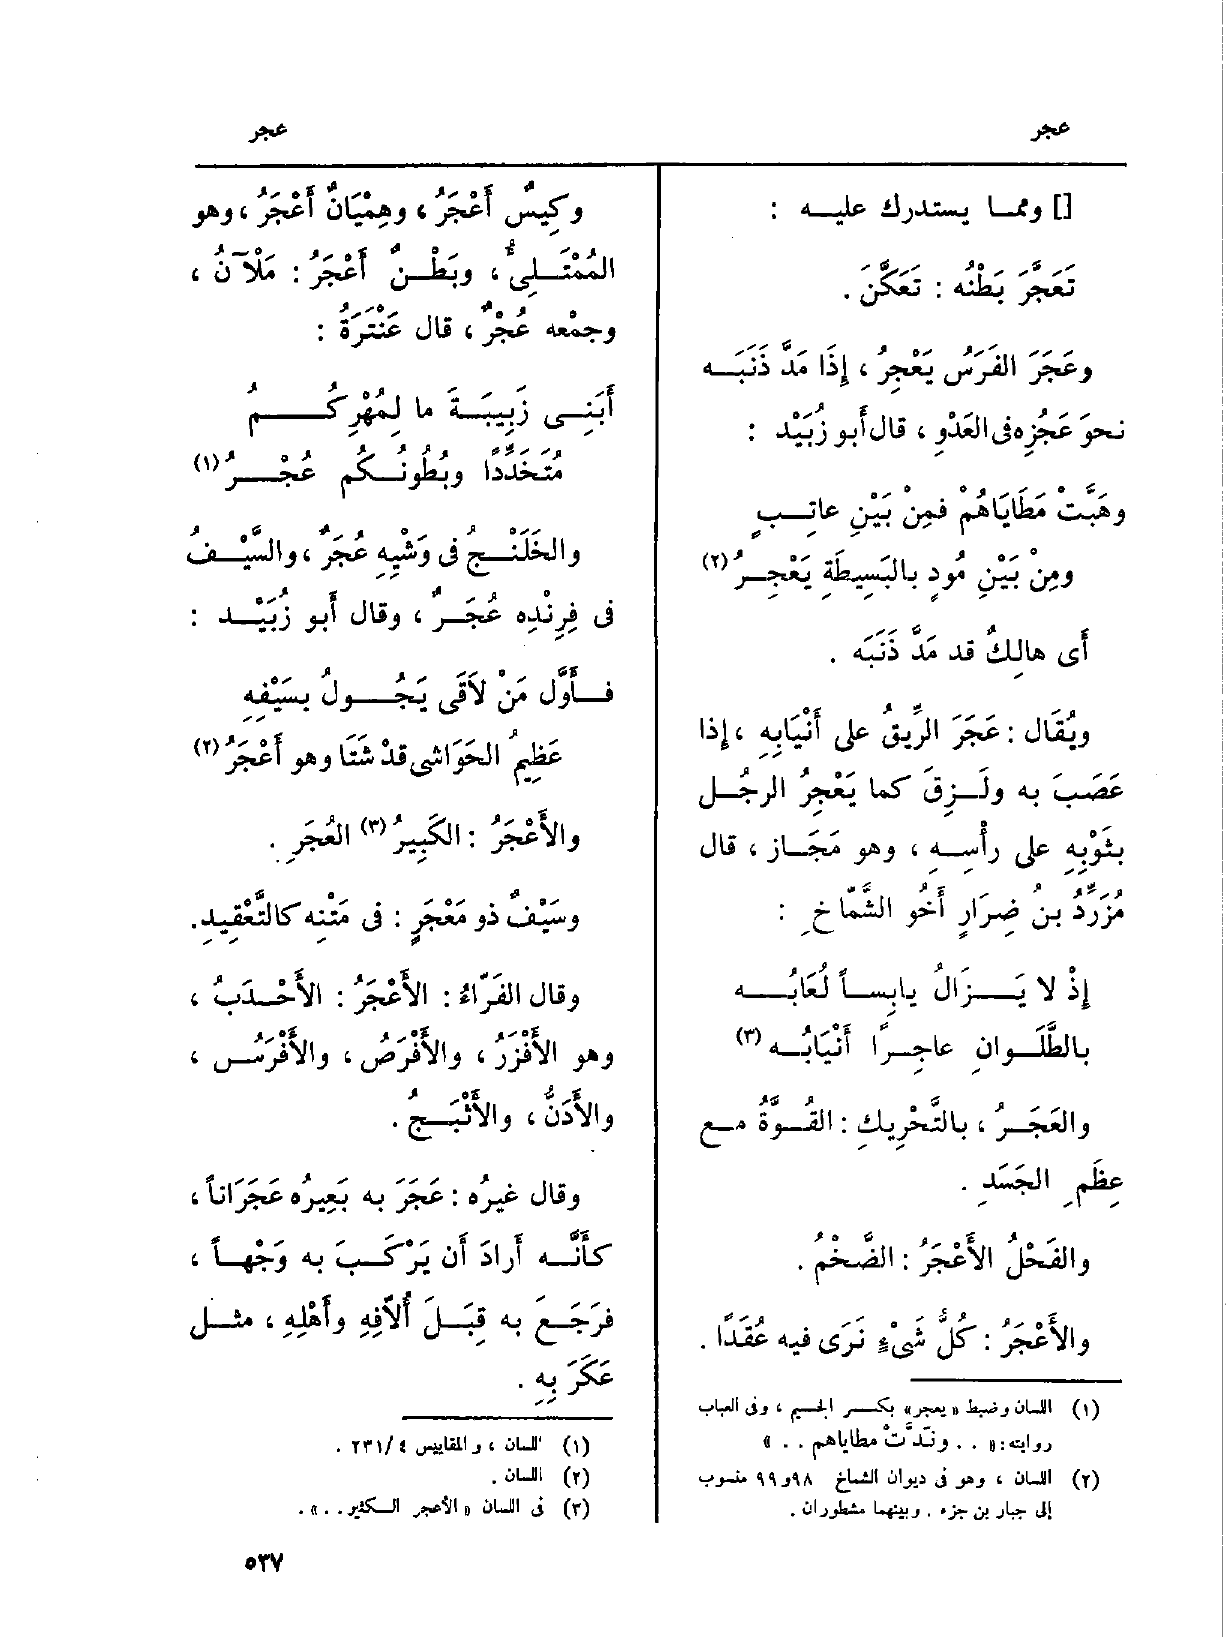 عجر
عجر
[] ومما يستدرك عليه :
تَعَجَّرَ بَطْنُه : تَعَكَّنَ .
وعَجَرَ الفَرَسُ يَعْجِرُ ، إِذَا مَدَّ ذَنَبَه
نحوَ عَجُزِه فى العَدْوِ ، قال أَبو زُبَيْد :
وهَبَّتْ مَطَايَاهُمْ فمِنْ بَيْنِ عاتِبٍ
ومِنْ بَيْنِ مُودٍ بالبَسِيطَةِ يَعْجِرُ (٢)
أَى هالِكٌ قد مَدَّ ذَنَبَه .
ويُقَال : عَجَرَ الرِّيقُ على أَنْيَابِه ، إِذا
عَصَبَ به ولَزِقَ كما يَعْجِرُ الرجُل
بثَوْبِه على رأْسِه ، وهو مَجَاز ، قال
مُزَرِّدُ بن ضِرَارٍ أَخُو الشَّمّاخِ :
إِذْ لا يَزَالُ يابِساً لُعَابُه
بالطَّلَوانِ عاجِرًا أَنْيَابُه (٣)
والعَجَرُ ، بالتَّحْرِيكِ : القُوَّةُ مع
عِظَمِ الجَسَدِ .
والفَحْلُ الأَعْجَرُ : الضَّخْمُ .
والأَعْجَرُ : كُلُّ شَىْءٍ نَرَى فيه عُقَدًا .
(١) اللسان وضبط «يعجر» بكسر الجيم ، وفى العباب
روايته : « . . ونَدَّتْ مطاياهم . . »
(٢) اللسان ، وهو فى ديوان الشماخ ٩٨ و ٩٩ منسوب
إلى جبار بن جزء . وبينهما مشطوران .
وكِيسٌ أَعْجَرُ ، وهِمْيَانٌ أَعْجَرُ ، وهو
المُمْتَلِىُّ ، وبَطْنٌ أَعْجَرُ : مَلْآنُ ،
وجمْعه عُجْرٌ ، قال عَنْتَرَةُ :
أَبَنِى زَبِيبَةَ ما لِمُهْرِكُمُ
مُتَخَدِّدًا وبُطُونُكُم عُجْرُ (١)
والخَلَنْجُ فى وَشْيِهِ عُجَرٌ ، والسَّيْفُ
فى فِرِنْدِه عُجَرٌ ، وقال أَبو زُبَيْد :
فأَوَّل مَنْ لاَقَى يَجُولُ بسَيْفِهِ
عَظِيمُ الحَوَاشى قدْ شَتَا وهو أَعْجَرُ (٢)
والأَعْجَرُ : الكَبِيرُ (٣) العُجَرِ .
وسَيْفٌ ذو مَعْجَرٍ : فى مَتْنِه كالتَّعْقِيدِ .
وقال الفَرّاءُ : الأَعْجَرُ : الأَحْدَبُ ،
وهو الأَفْزَرُ ، والأَفْرَصُ ، والأَفْرَسُ ،
والأَدَنُّ ، والأَثْبَجُ .
وقال غيرُه : عَجَرَ به بَعِيرُه عَجَرَاناً ،
كأَنَّه أَرادَ أَن يَرْكَبَ به وَجْهاً ،
فرَجَعَ به قِبَلَ أُلاَّفِهِ وأَهْلِهِ ، مثل
عَكَرَ بِهِ .
(١) اللسان ، والمقاييس ٤ /٢٣١ .
(٢) اللسان .
(٣) فى اللسان « الأعجر الكثير . . » .
٥٣٧